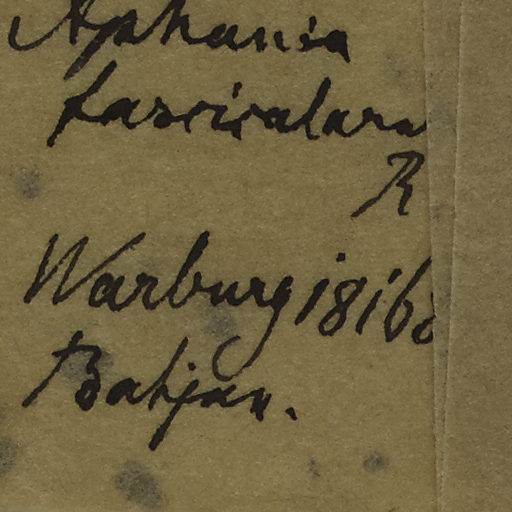 Aphania
fascicularis
R
Warburg 18168
Batjan.